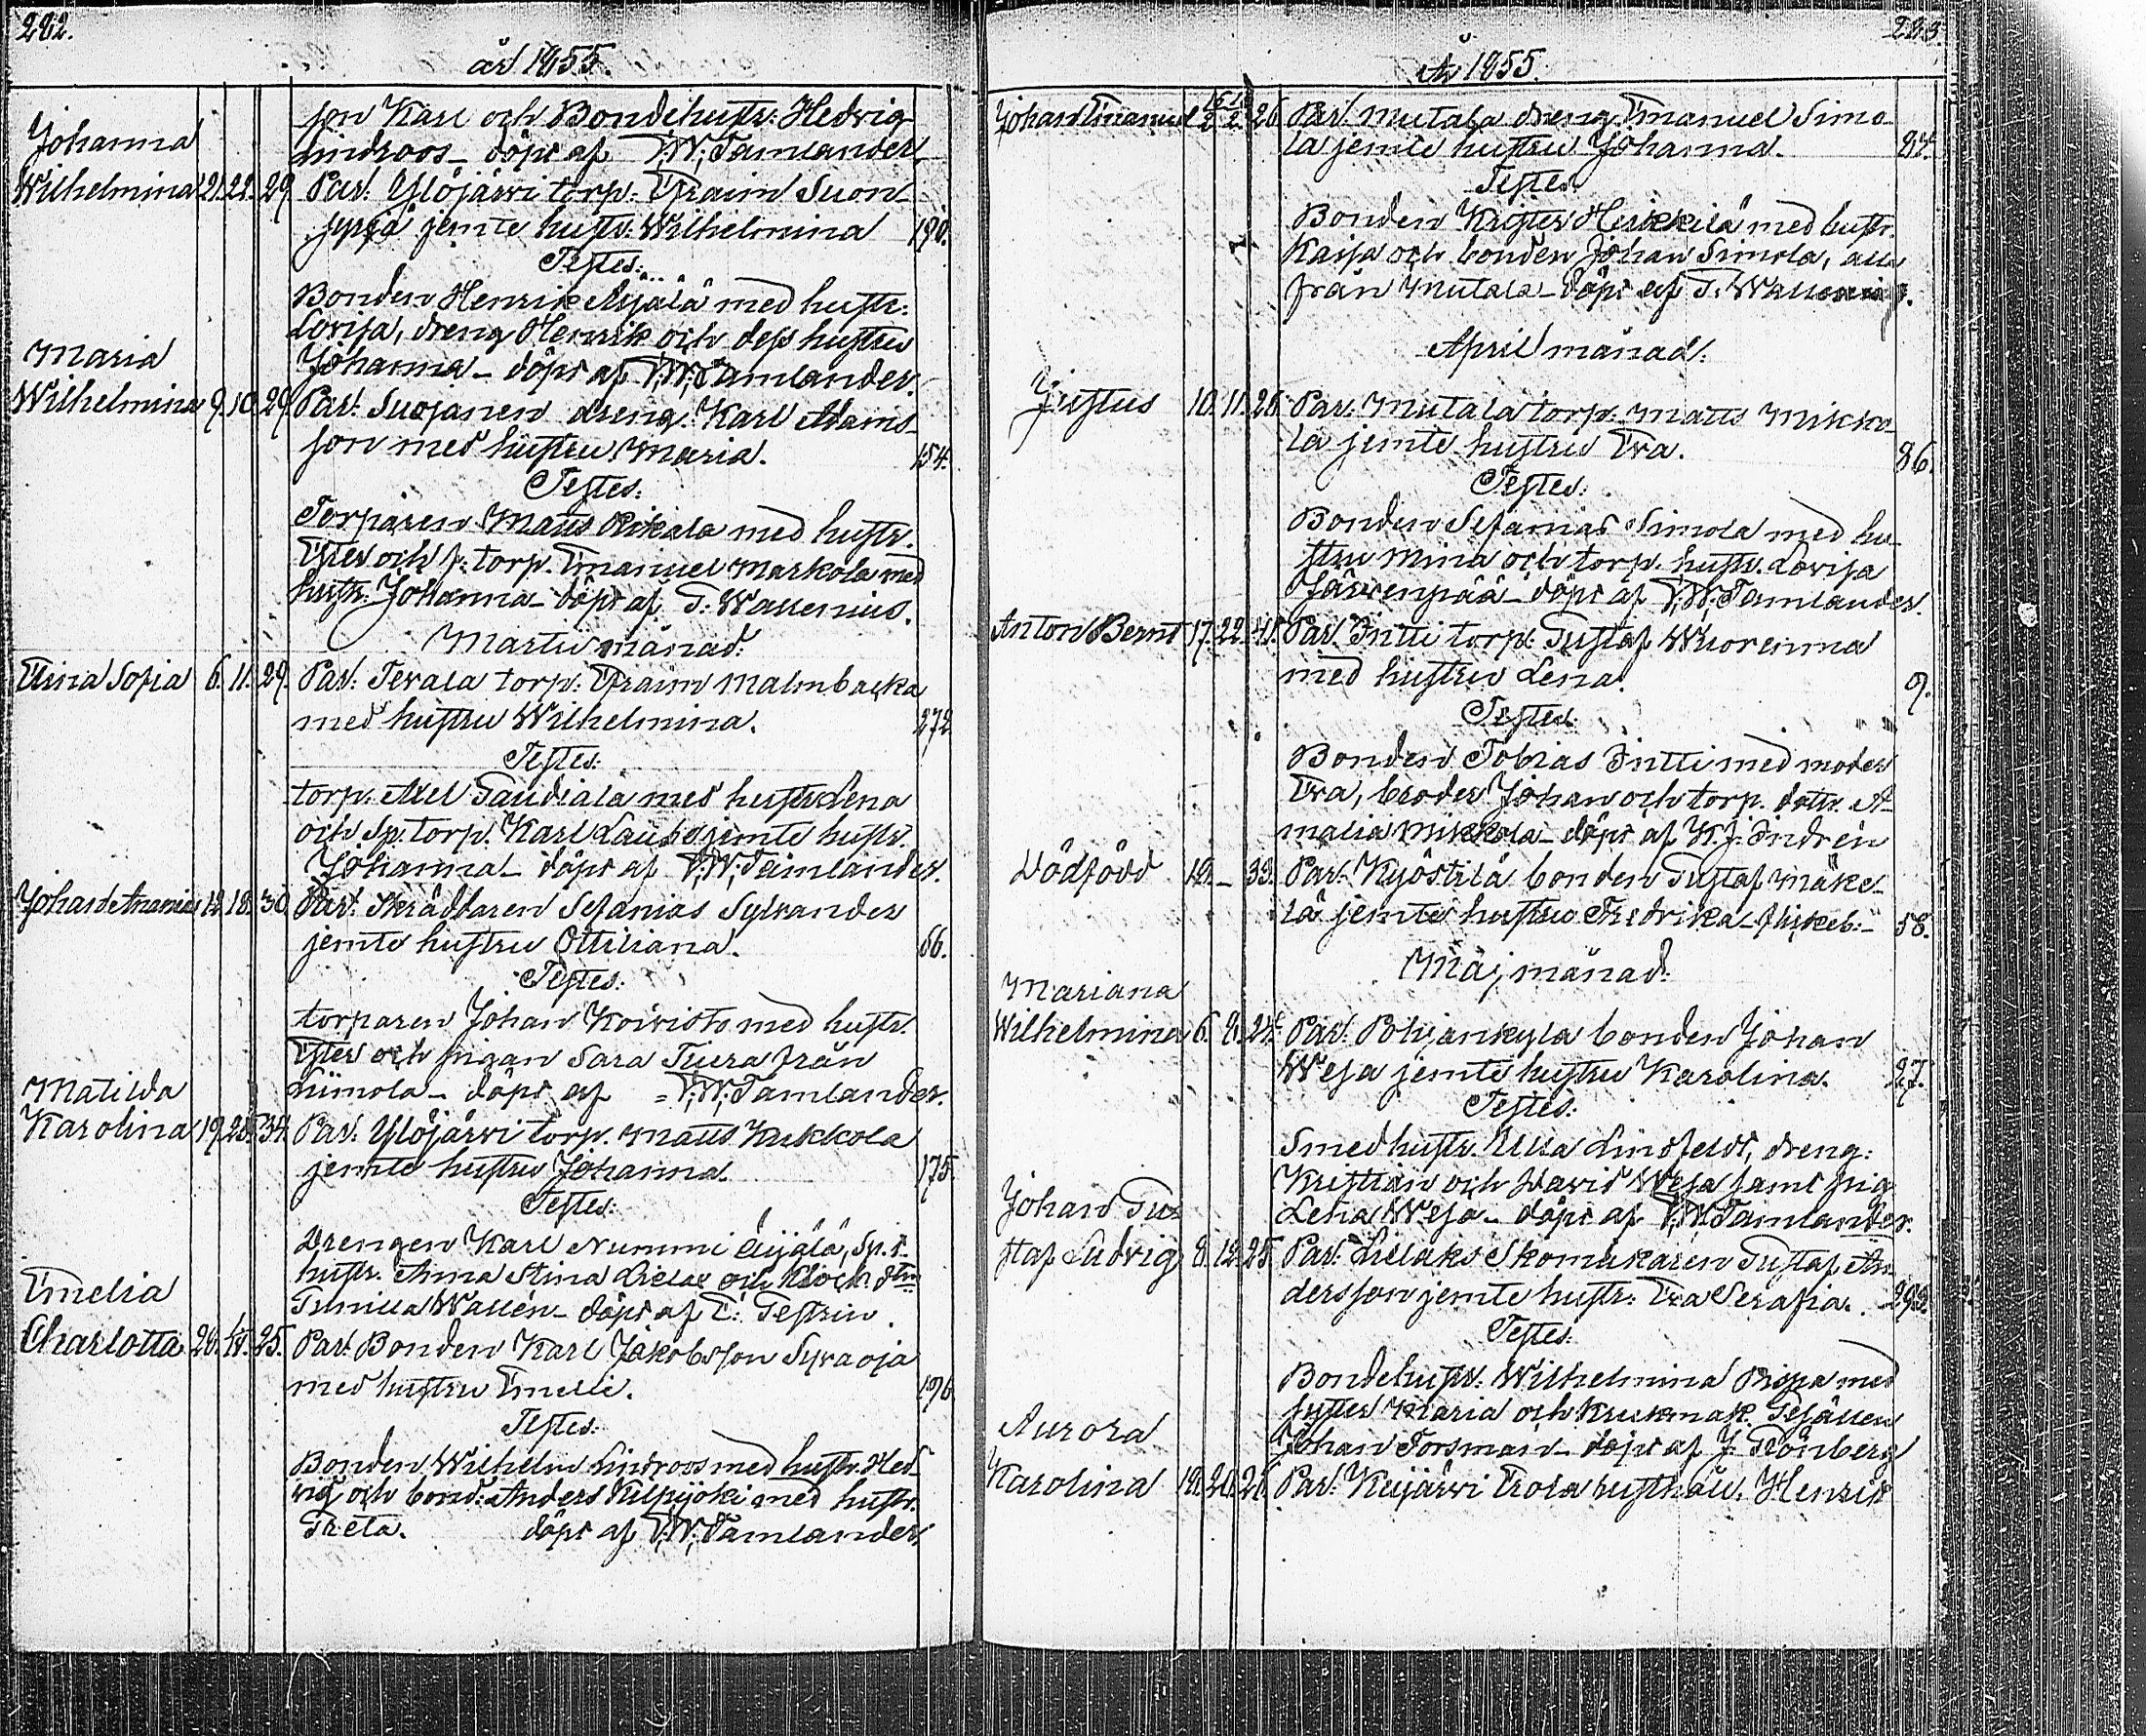 282.
år 1855.
son Karl och Bondehustr. Hedvig
Johanna
Lindroos_ döpt af V.W. Tamlander
Wilhelmina 21. 22. 29. Par. Ylöjärvi torp. Efraim Suon-
jemte hustr. Wilhelmina 190.
Testes:
Bonden Henrik Äijälä med hustr.
Lovisa, dreng Henrik och dess hustru
Maria
Johanna_ döpt af V.W. Tamlander.
Wilhelmina 9. 10. 29. Par. Suojanen dreng Karl Adams-
son med hustru Maria. 154.
Testes:
Torparen Matts med hustr.
Ester och torp. Emanuel Markola med
hustr. Johanna_ döpt af T. Wallenius.
Martii månad:
Elina Sofia 6. 11. 29. Par. Tevala torp. Efraim Malmbacka
med hustru Wilhelmina. 272
Testes:
torp. Axel Gaudiala med hustr. Lena
och Sp. torp. Karl jemte hustr.
Johanna_ döpt af V.W. Tamlander.
Johan Ananias 12. 18. 30 Par. Skräddaren Sefanias Sylvander
jemte hustru Ottiliana. 66.
Testes:
torparen Johan Koivisto med hustr.
Ester och pigan Sara Tiura från
Matilda
Liimola_ döpt af V.W. Tamlander.
Karolina 19. 25. 34. Par. Ylöjärvi torp. Matts Kukkola
jemte hustru Johanna. 175.
Testes:
Drengen Karl Nummi Äijälä, Sp. t.
hustr. Anna Stina och Klock. dtr
Emelia
Gunilla Wallén_ döpt af E. Gestrin.
Charlotta 25. Par. Bonden Karl Jakobsson Syvaoja
med hustru Emelie. 196
Testes:
Bonden Wilhelm Lindroos med hustr. Hed-
vig och bond. Anders Kilpijoki med hustr.
Greta. döpt af V.W. Tamlander.
283.
År 1855.
Johan Emanuel 26 Par. Mutala dreng Emanuel Simo-
la jemte hustru Johanna. 84.
Testes:
Bonden Krister Heikkilä med hustr.
Kaisa och bonden Johan Simola, alla
från Mutala_ döpt af T. Wallenius.
April månad:
Justus 10. 11. 26. Par. Mutala torp. Matts Mikko-
la jemte hustru Eva. 86.
Testes:
Bonden Sefanias Simola med hu-
stru Mina och torp. hustr. Lovisa
Järvenpää_ döpt af V.W. Tamlander.
Anton Bernt 17. 22. 41. Par. Intti torp. Gustaf Wuorenma
med hustru Lena. 9.
Testes:
Bonden Tobias Intti med moder
Eva, broder Johan och torp. dottr. A-
malia Mikkola_ döpt af K.J. Indrén
Dödfödd 12. _ 33. Par. Kyöstilä bonden Gustaf Mäke-
lä jemte hustru Fredrika_ 58.
Maj månad:
Mariana
Wilhelmina 6. 8. 24. Par. Pohjankylä bonden Johan
Wesa jemte hustru Karolina. 27.
Testes:
Smed hustr. Ulla Lindfeldt, dreng:
Kristian och David Wesa samt pig.
Johan Gu-
Lena Wesa_ döpt af V.W. Tamlander.
staf Ludvig 8. 12. 25. Par. Lielaks Skomakaren Gustaf An-
dersson jemte hustr. Eva Serafia. 292.
Testes:
Bondehustr. Wilhelmina Pispa med
syster Maria och Krukmak. Gesällen
Aurora
Johan Forsman_ döpt af J. Grönberg
Karolina 19. 20. 28. Par. Keijärvi Erola rusthåll. Henrik